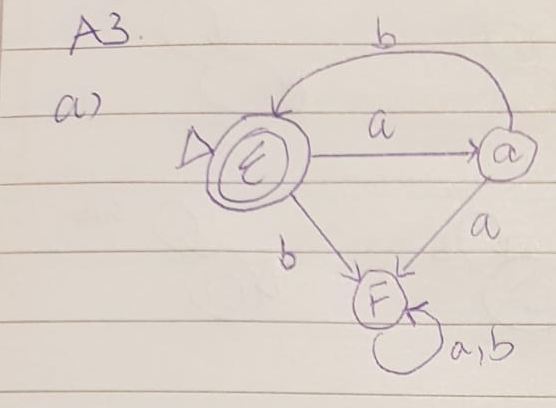 A3.
a)
b
a
ε
a
b
a
F
a,b